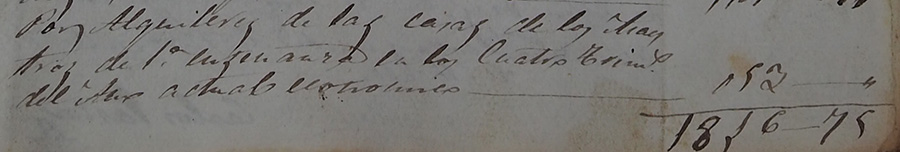 Por Alquileres de las casas de los Maes
tros de 1ª enzenanza en los Cuatro Trimes
del Año actual economico 152 — "
1816—75